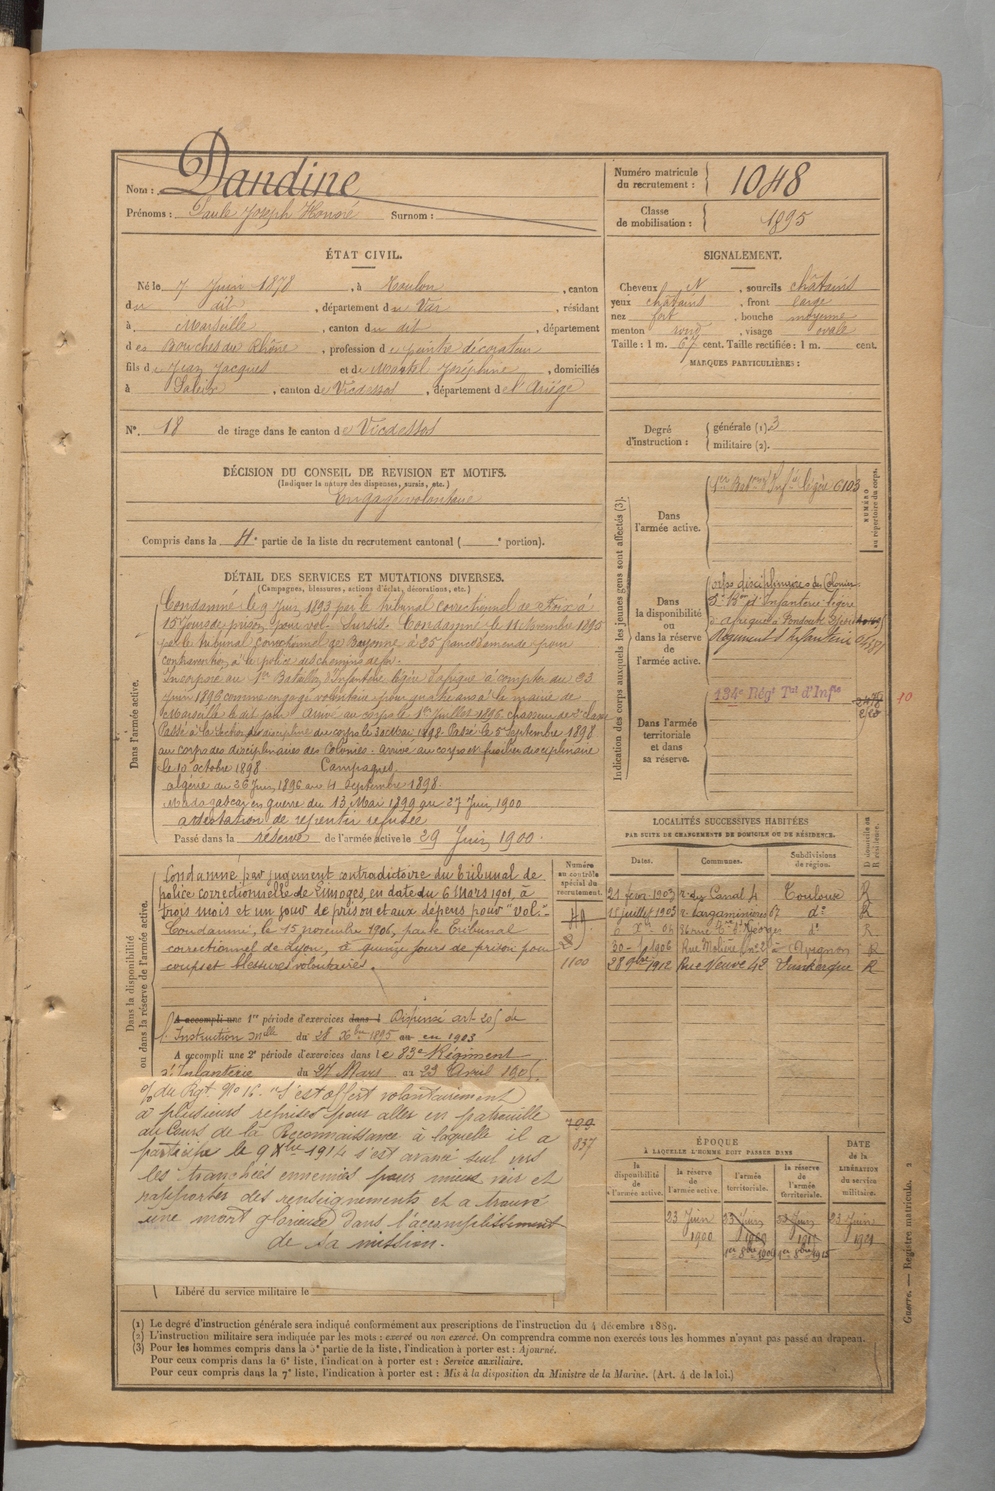 Nom : Dandine
Prénoms : Paule Joseph Honoré Surnom :
Numéro matricule
du recrutement : 1048
Classe
de mobilisation : 1895
ÉTAT CIVIL.
Né le 7 Juin 1878, à Toulon, canton
du dit, département du Var, résidant
à Marseille, canton du dit, département
des Bouches du Rhône, profession de peintre décorateur
fils de Jean Jacques et de Martel Joséphine, domiciliés
à Saleix, canton de Vicdessos, département de l'Ariège
N°. 18 de tirage dans le canton de Vicdessos
DÉCISION DU CONSEIL DE REVISION ET MOTIFS.
(Indiquer la nature des dispenses, sursis, etc.)
Engagé volontaire
Compris dans la 4e partie de la liste du recrutement cantonal ( e portion).
SIGNALEMENT.
Cheveux N, sourcils châtains
yeux châtains, front large
nez fort, bouche moyenne
menton rond, visage ovale
Taille : 1 m. 67 cent. Taille rectifiée : 1 m. cent.
MARQUES PARTICULIÈRES :
Degré
d'instruction : générale (1). 3
militaire (2).
DÉTAIL DES SERVICES ET MUTATIONS DIVERSES.
(Campagnes, blessures, actions d'éclat, décorations, etc.)
Dans l'armée active.
Condamné le 9 Juin 1893 par le tribunal correctionnel de Foix à
15 jours de prison pour vol. Sursis. Condamné le 11 Novembre 1895
par le tribunal correctionnel de Bayonne à 25 francs d'amende pour
contravention à la police des chemins de fer.
Incorporé au 1er Bataillon d'Infanterie légère d'Afrique à compter du 23
Juin 1896 comme engagé volontaire pour quatre ans à la mairie de
Marseille le dit jour. Arrivé au corps le 1er Juillet 1896. chasseur de 2e classe
Passé à la section de discipline du corps le 30 Mai 1898. Passé le 5 septembre 1898
au corps des disciplinaires des Colonies. Arrivé au corps et fusilier disciplinaire
le 10 octobre 1898. Campagnes.
Algérie du 26 Juin 1896 au 4 Septembre 1898.
Madagascar en guerre du 13 Mai 1899 au 27 Juin 1900
attestation de repentir refusée
Passé dans la réserve de l'armée active le 29 Juin 1900.
Indication des corps auxquels les jeunes gens sont affectés (3).
NUMÉRO
au répertoire du corps.
Dans
l'armée active.
1er Baton d'Infie légère 6103
Dans
la disponibilité
ou
dans la réserve
de
l'armée active.
Corps disciplinaires des Colonies
3e Bon d'Infanterie légère
d'Afrique
Régiment d'Infanterie
Dans l'armée
territoriale
et dans
sa réserve.
134e Régt Tal d'Infie
10
Dans la disponibilité
ou dans la réserve de l'armée active.
Condamné par jugement contradictoire du tribunal de
police correctionnelle de Limoges, en date du 6 Mars 1901, à
trois mois et un jour de prison et aux dépens pour "vol."
Condamné, le 15 novembre 1906, par le Tribunal
correctionnel de Lyon, à quinze jours de prison pour
coups et blessures volontaires.
A accompli une 1re période d'exercices dans l Dispensé art 205 de
l'Instruction mlle du 28 Xbre 1895 au en 1903
A accompli une 2e période d'exercices dans le 83e Régiment
d'Infanterie du 27 Mars au 23 Avril 1905.
% du Rgt. No 16. "S'est offert volontairement
à plusieurs reprises pour aller en patrouille
au Cours de la Reconnaissance à laquelle il a
participé le 9 Xbre 1914 s'est avancé seul vers
les tranchées ennemies pour mieux voir et
rapporter des renseignements et a trouvé
une mort glorieuse dans l'accomplissement
de sa mission.
Libéré du service militaire le
Numéro
au contrôle
spécial du
recrutement.
1100
799
837
LOCALITÉS SUCCESSIVES HABITÉES
PAR SUITE DE CHANGEMENTS DE DOMICILE OU DE RÉSIDENCE.
Dates. Communes. Subdivisions
de région.
D domicile ou
R résidence.
21 févr 1903 r. du Canal 4 Toulouse R
11 juillet 1905 r. Largaminières 67 do R
6 Xbre 06 St Georges do R
30 1906 Rue Molière no 2 Avignon R
28 9bre 1912 Rue Neuve 42 Dunkerque R
ÉPOQUE
À LAQUELLE L'HOMME DOIT PASSER DANS
la
disponibilité
de
l'armée active.
la réserve
de
l'armée active.
l'armée
territoriale.
la réserve
de
l'armée
territoriale.
DATE
de la
LIBÉRATION
du service
militaire.
23 Juin
1900
23 Juin
1er 8bre 1909
23 Juin
1er 8bre 1915
23 Juin
1921
(1) Le degré d'instruction générale sera indiqué conformément aux prescriptions de l'instruction du 4 décembre 1889.
(2) L'instruction militaire sera indiquée par les mots : exercé ou non exercé. On comprendra comme non exercés tous les hommes n'ayant pas passé au drapeau.
(3) Pour les hommes compris dans la 5e partie de la liste, l'indication à porter est : Ajourné.
Pour ceux compris dans la 6e liste, l'indication à porter est : Service auxiliaire.
Pour ceux compris dans la 7e liste, l'indication à porter est : Mis à la disposition du Ministre de la Marine. (Art. 4 de la loi.)
Guerre. — Registre matricule. 2